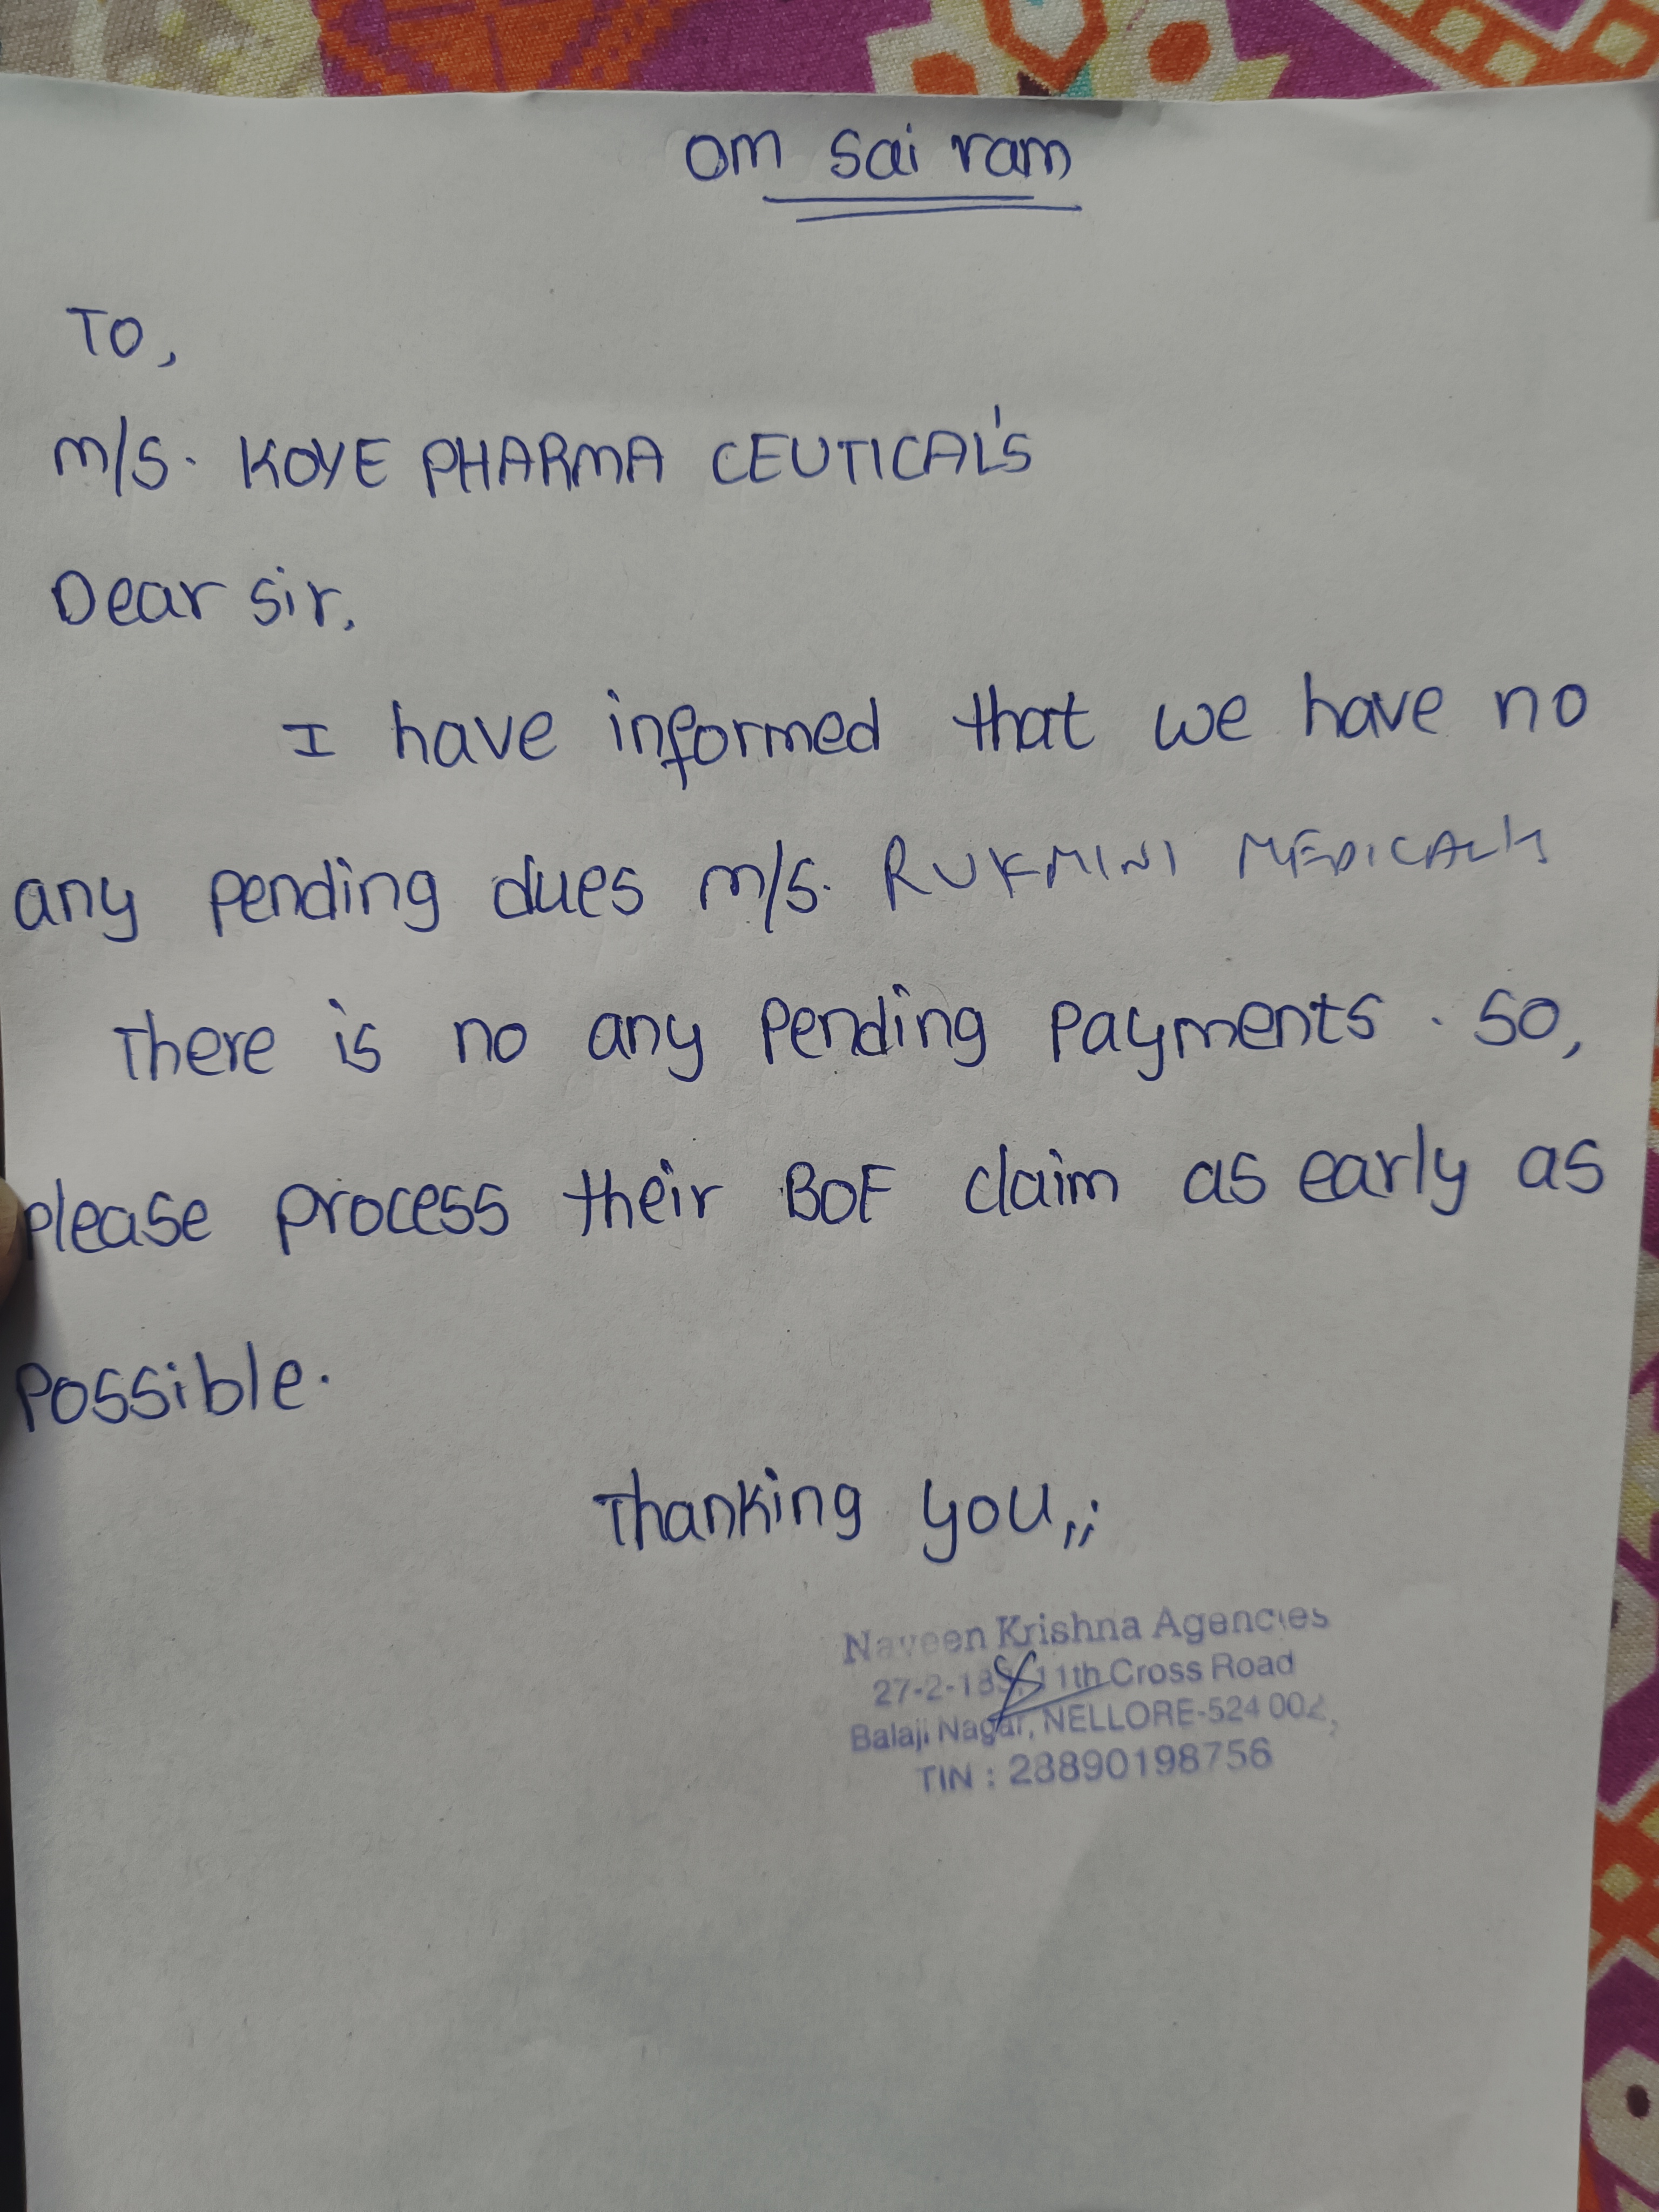 om sai ram
To,
m/s. KOYE PHARMA CEUTICAL'S
Dear sir,
I have informed that we have no
any pending dues m/s. RUKMINI MEDICAL'S
There is no any pending payments. so,
please process their BOE claim as early as
possible.
Thanking you,,;
Naveen Krishna Agencies
11th Cross Road
Balaji Nagar, NELLORE-524 002,
TIN : 28890198756